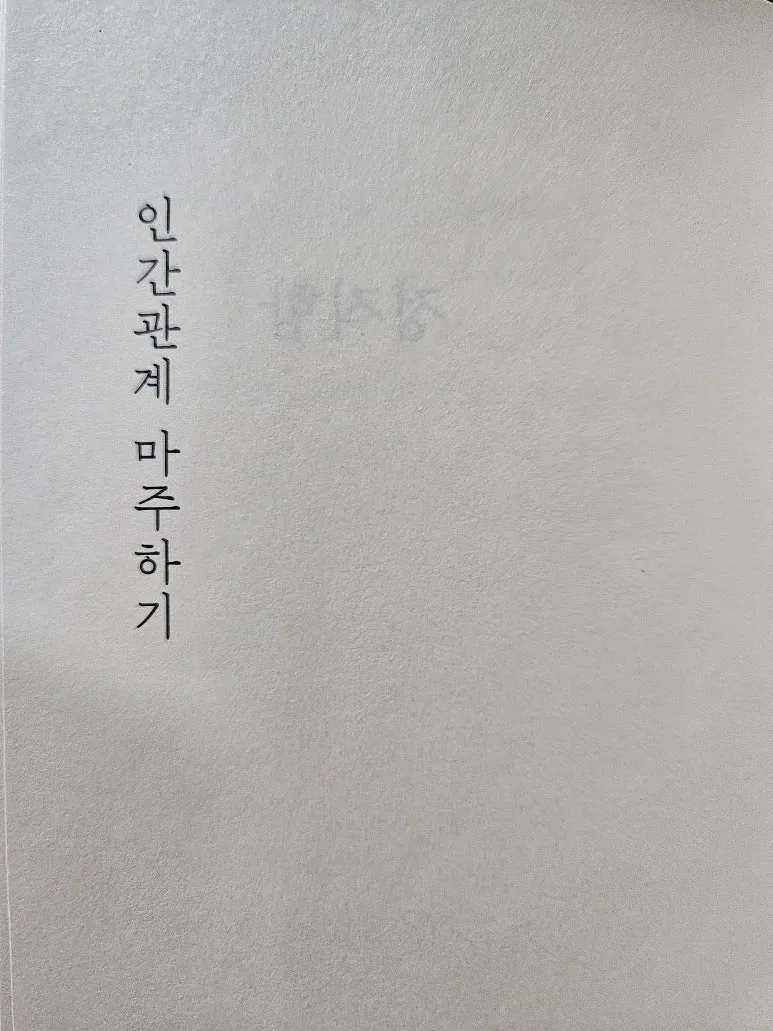 인간관계 마주하기